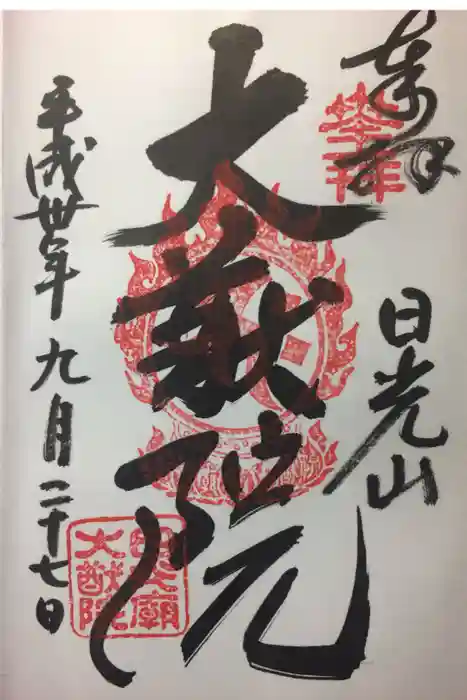 奉拝
日光山
大猷院
平成卅年九月二十七日
奉拝
大猷院